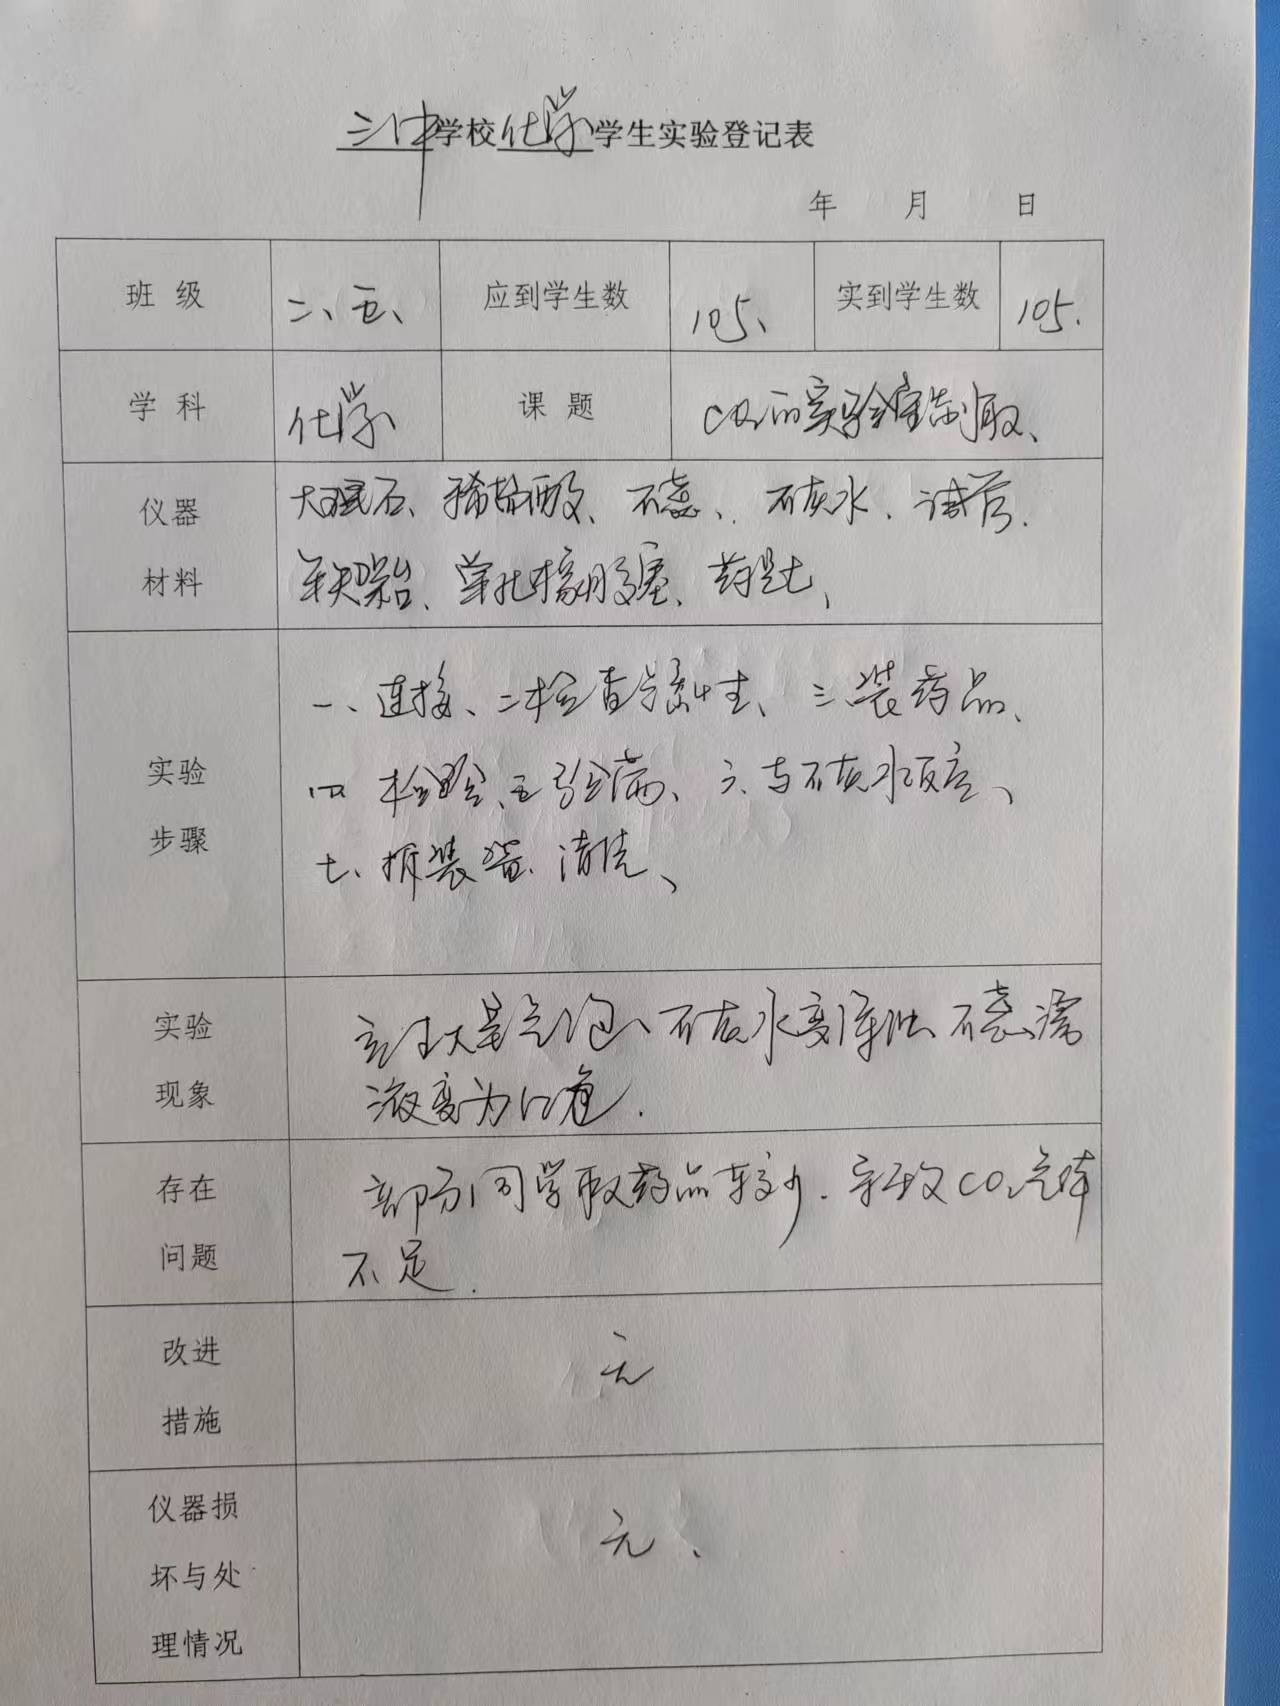 三中学校化学学生实验登记表
年 月 日
班 级 二、五、 应到学生数 105、 实到学生数 105.
学 科 化学 课 题 CO₂的实验室制取、
仪器 大理石、稀盐酸、石蕊、石灰水、试管.
材料 铁架台、单孔橡胶塞、药匙、
一、连接、二检查气密性、三、装药品、
实验 四 检验、五 验满、六、与石灰水反应、
步骤 七、拆装置、清洗、
实验 产生大量气泡、石灰水变浑浊 石蕊溶
现象 液变为红色.
存在 部分同学取药品较少.导致CO₂气体
问题 不足.
改进 无
措施
仪器损 无、
坏与处
理情况